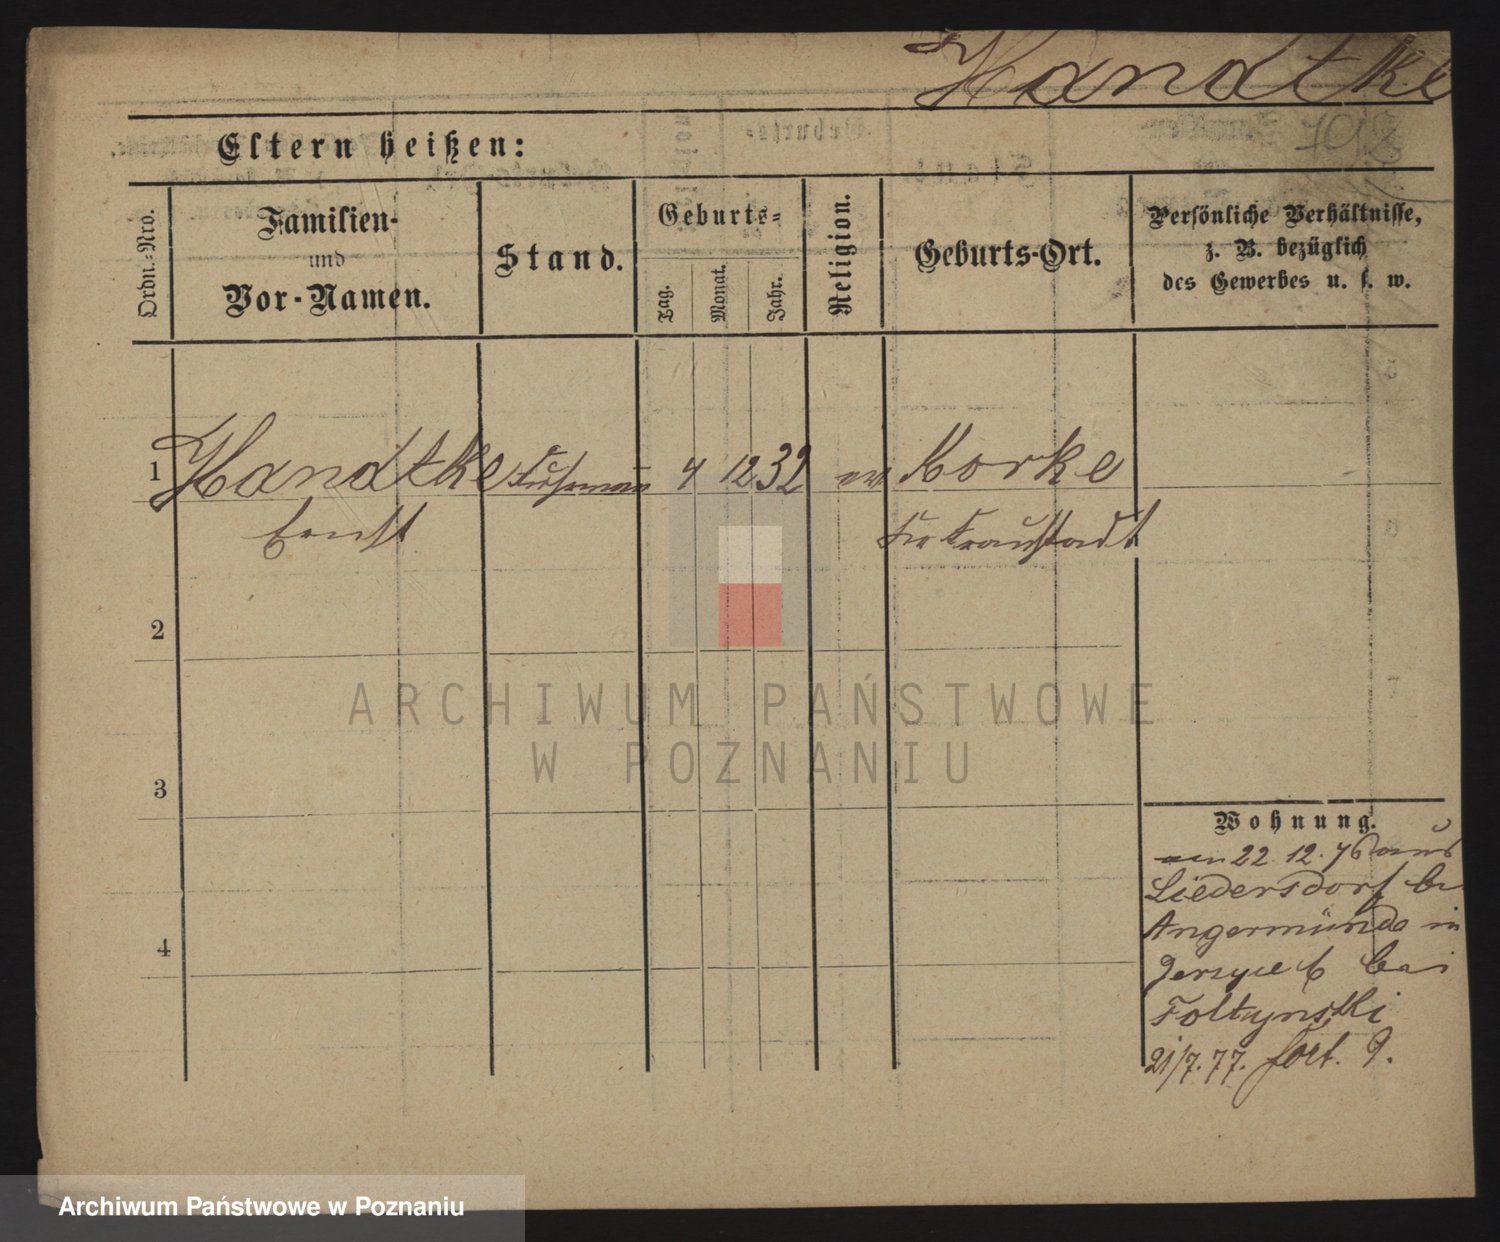 Handtke
Eltern heißen:
Ordn.-Nro.
Familien-
und
Vor-Namen.
Stand.
Geburts-
Tag.
Monat.
Jahr.
Religion.
Geburts-Ort.
Persönliche Verhältnisse,
z. B. bezüglich
des Gewerbes u. s. w.
1 Handtke Fuhrmann 4 12 32 ev Korke
Ernst Kr Fraustadt
2
3
4
Wohnung.
am 22 12. 76 aus
Liedersdorf bei
Angermünde in
Jersyce 6 bei
Foltynski
21/7. 77. fort.
ARCHIWUM PAŃSTWOWE
W POZNANIU
Archiwum Państwowe w Poznaniu